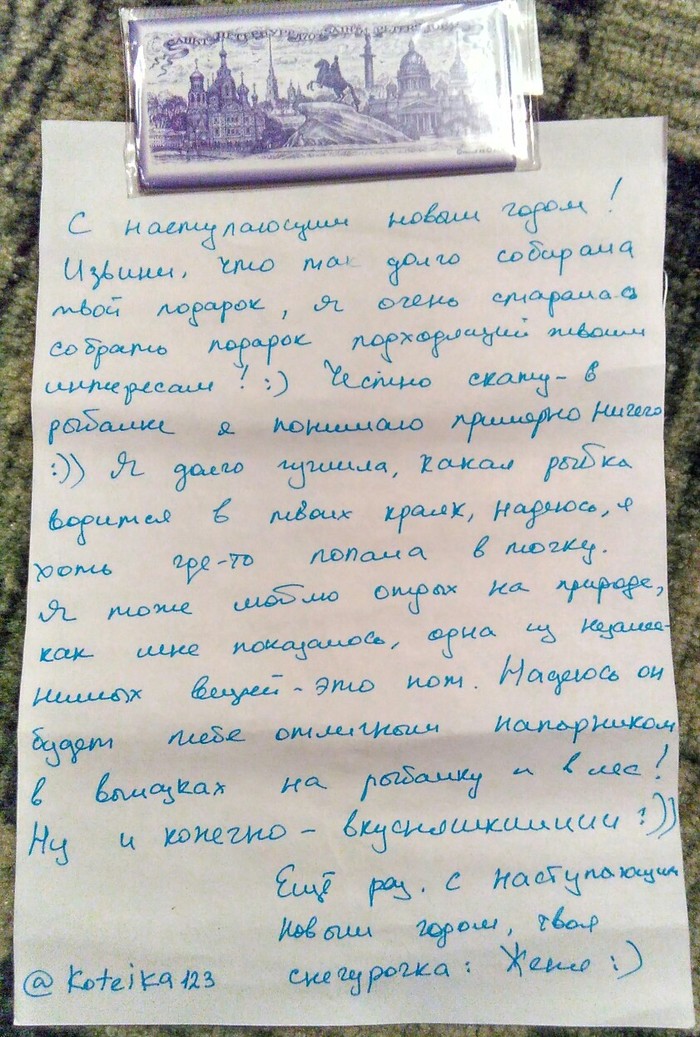 САНКТ-ПЕТЕРБУРГ
С наступающим новым годом!
Извини, что так долго собирала
твой подарок, я очень старалась
собрать подарок подходящий твоим
интересам! :) Честно скажу - в
рыбалке я понимаю примерно ничего
:)) Я долго гуглила, какая рыбка
водится в твоих краях, надеюсь, я
хоть где-то попала в точку.
Я тоже люблю отдых на природе,
как мне показалось, одна из незаме-
нимых вещей - это нож. Надеюсь он
будет тебе отличным напарником
в вылазках на рыбалку и в лес!
Ну и конечно - вкусняшкиииии :))
Ещё раз. с наступающим
Новым годом, твоя
снегурочка: Женя :)
@Koteika123